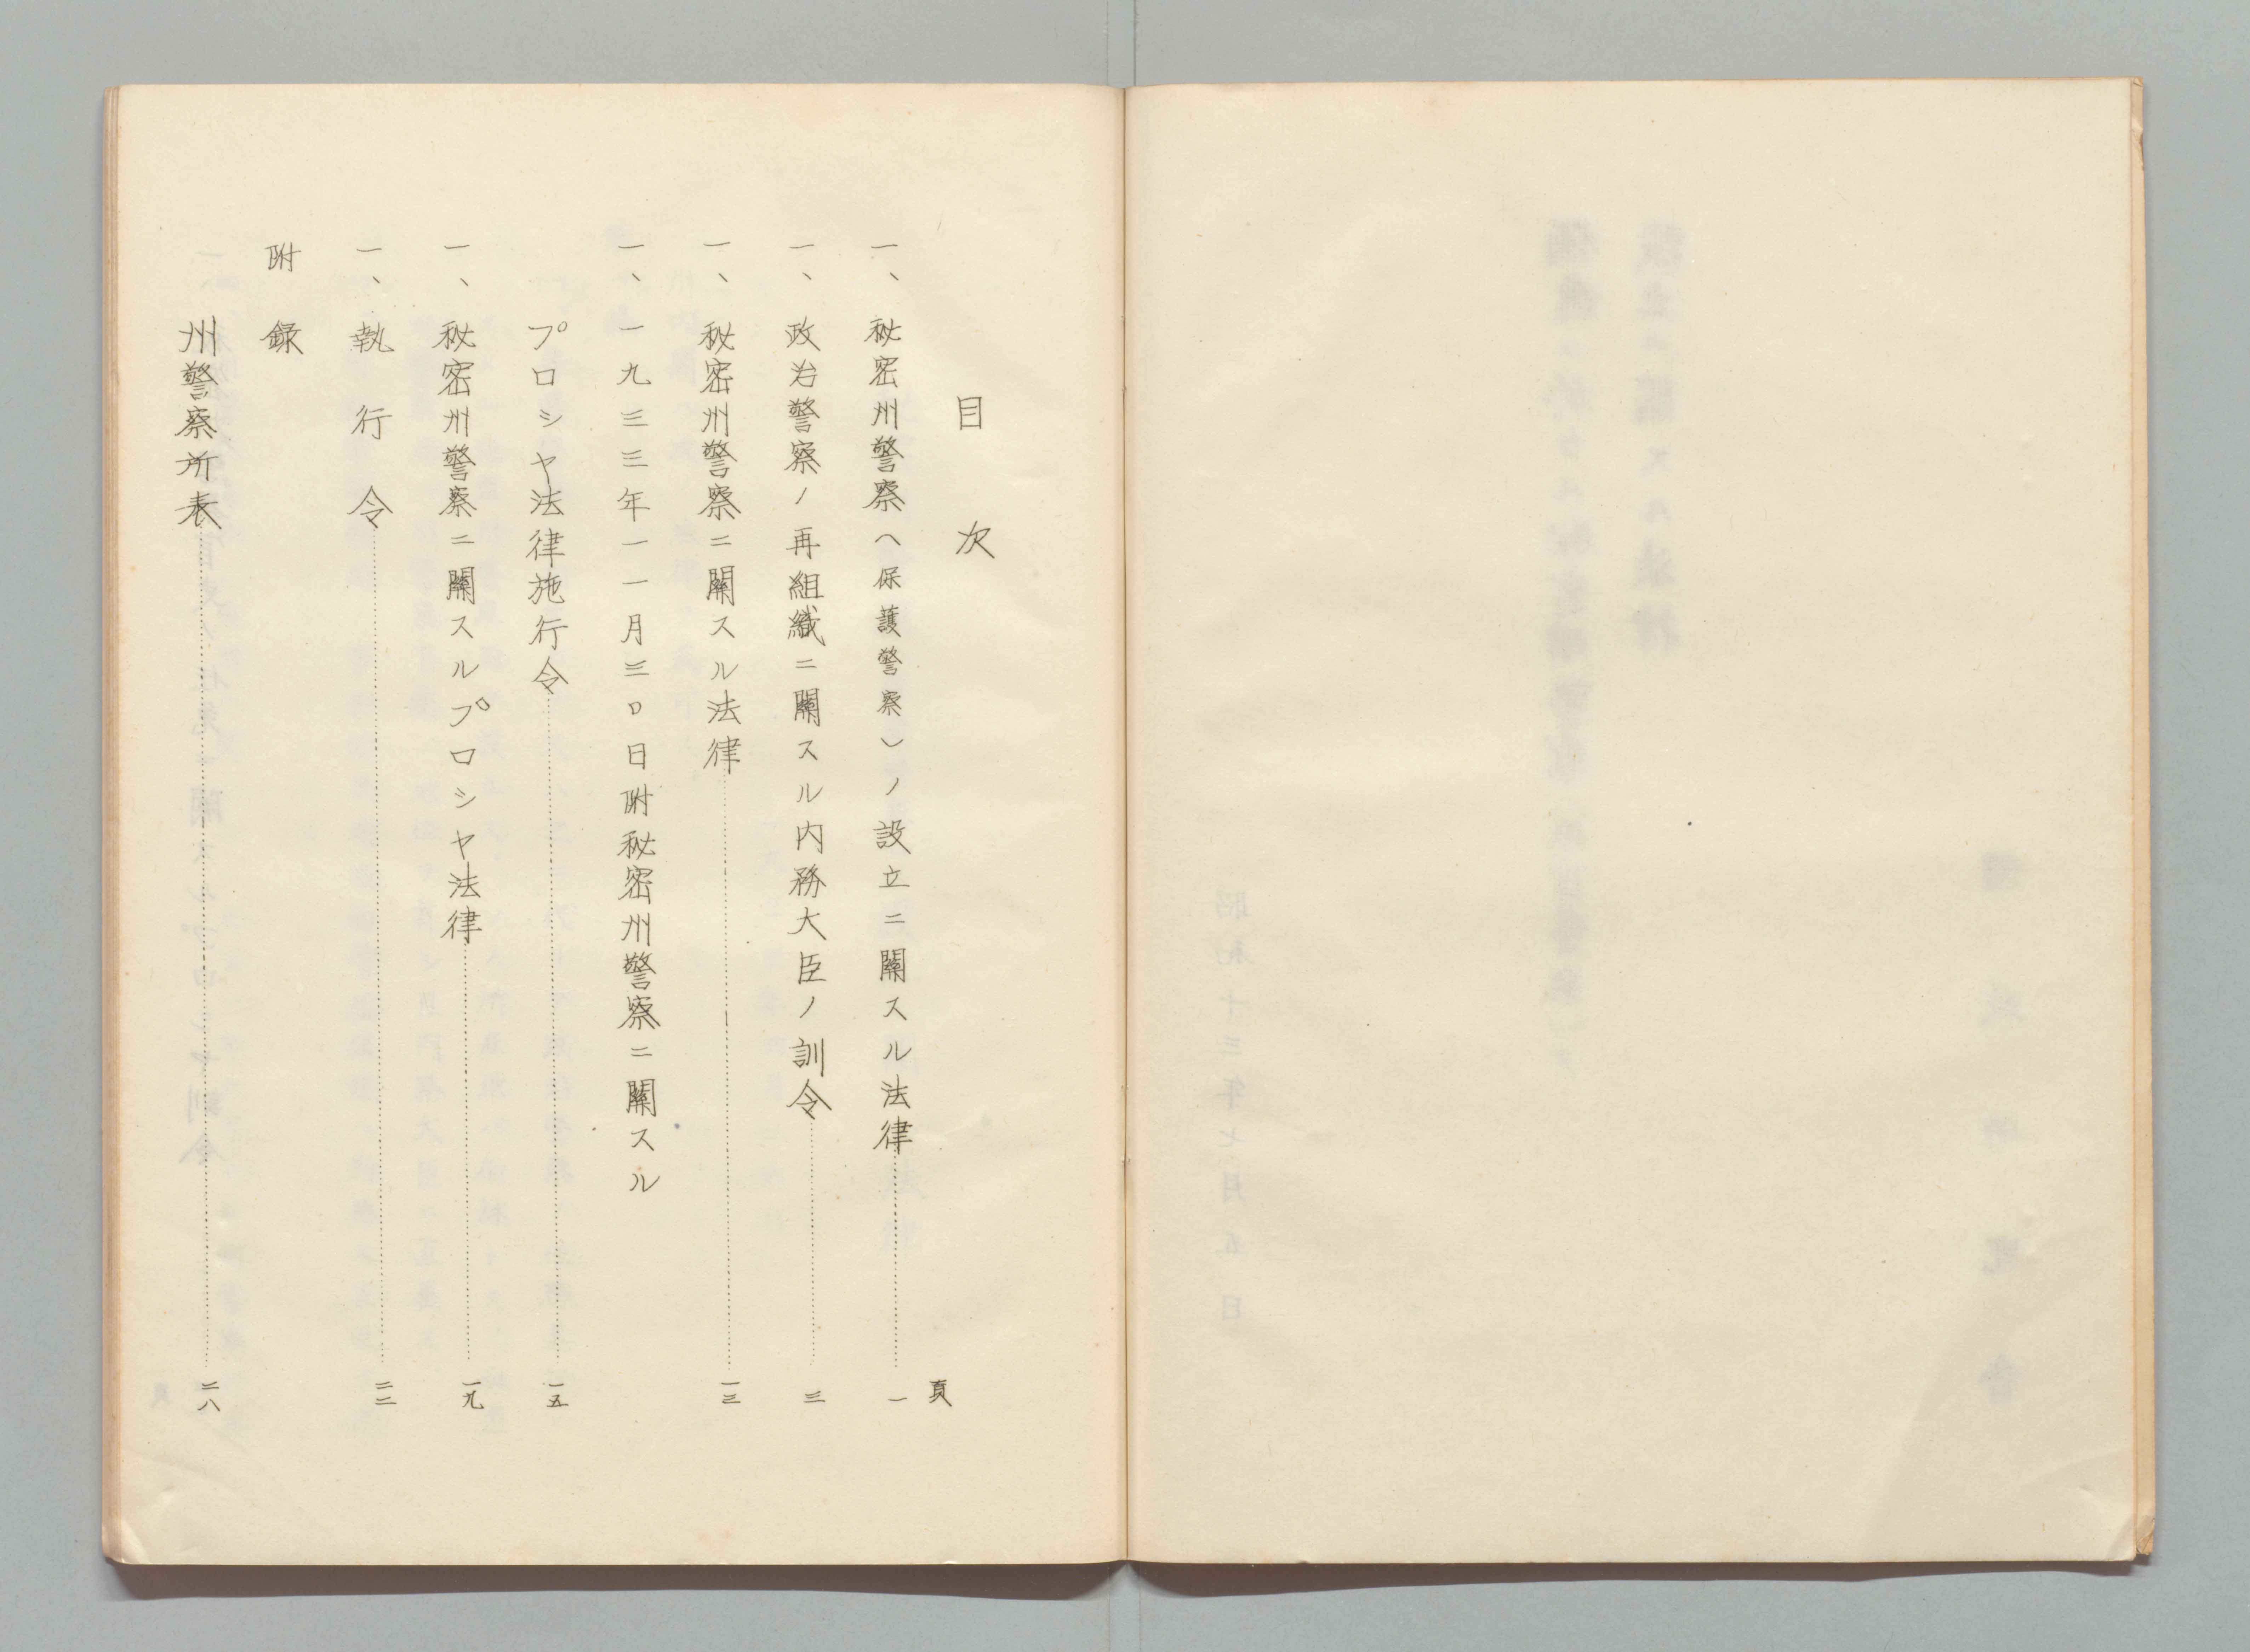 目次
頁
一、秘密州警察（保護警察）ノ設立ニ關スル法律…………一
一、政治警察ノ再組織ニ關スル内務大臣ノ訓令…………三
一、秘密州警察ニ關スル法律…………一三
一、一九三三年一一月三〇日附秘密州警察ニ關スル
プロシヤ法律施行令…………一五
一、秘密州警察ニ關スルプロシヤ法律…………一九
一、執行令…………二二
附録
州警察所表…………二八